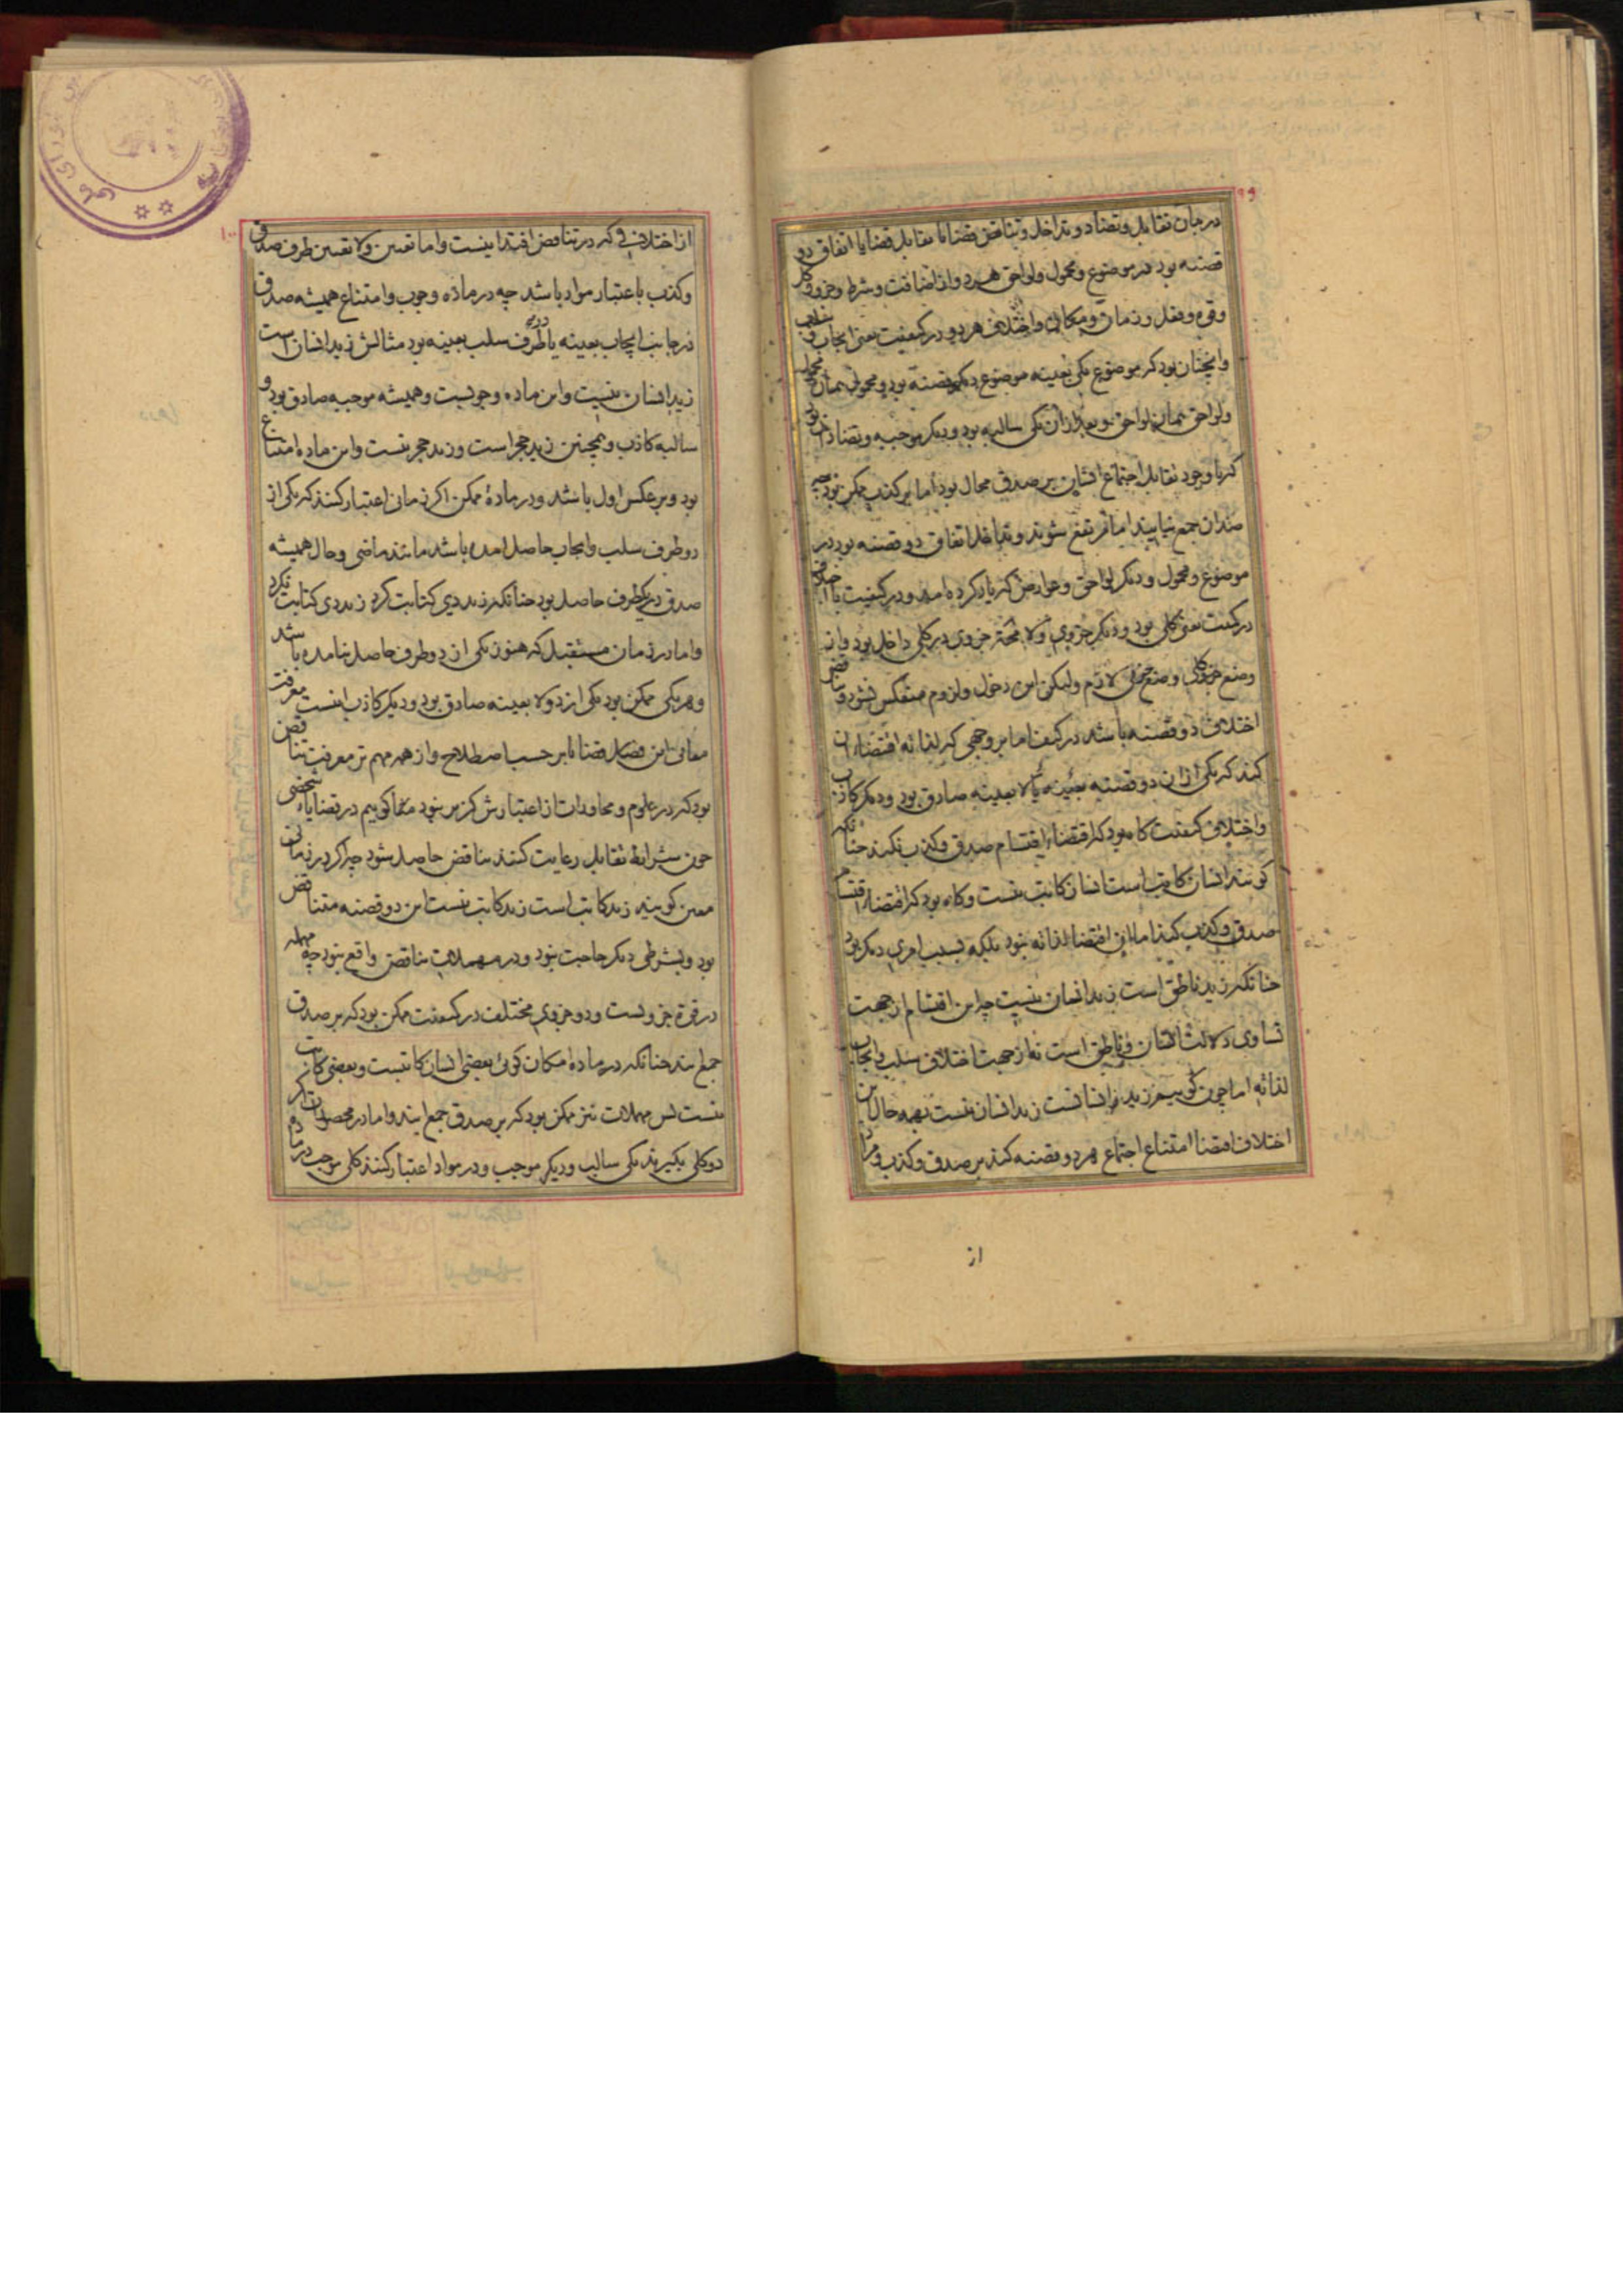 ٩٩
در بیان تقابل و تضاد و تداخل و تناقض قضایا تقابل قضایا اتفاق دو
قضیه بود در موضوع و محمول و لواحق هر دو از اضافت و شرط و جزو و کل
و قوه و فعل و زمان و مکان و اختلاف هر دو در کیفیت یعنی ایجاب و سلب
و اینچنان بود که موضوع یکی بعینه موضوع دیگر قضیه بود و محمول همان محمول
و لواحق همان لواحق و بعد از آن یکی سالبه بود و دیگر موجبه و تضاد آن بود
که با وجود تقابل اجتماع ایشان بر صدق محال بود اما بر کذب ممکن بود چه
ضدان جمع نیایند اما مرتفع شوند و تداخل اتفاق دو قضیه بود در
موضوع و محمول و دیگر لواحق و عوارض که یاد کرده آمد و در کیفیت با اختلاف
در کمیت یعنی یکی کلی بود و دیگر جزوی و لا محٰله جزوی در کلی داخل بود و از
وضع کلی وضع جزوی لازم ولیکن این دخول و لزوم منعکس نشود و تناقض
اختلاف دو قضیه باشد در کیف اما بر وجهی که لذاته اقتضاء آن
کند که یکی از آن دو قضیه بعینه یا لا بعینه صادق بود و دیگر کاذب
و اختلاف کیفیت گاه بود که اقتضاء اقتسام صدق و کذب نکند چنانکه
گویند انسان کاتب است انسان کاتب نیست و گاه بود که اقتضاء اقتسام
صدق و کذب کند اما این اقتضا لذاته نبود بلکه بسبب امری دیگر بود
چنانکه زید ناطق است زید انسان نیست چه این اقتسام از جهت
تساوی دلالت انسان و ناطق است نه از جهت اختلاف سلب و ایجاب
لذاته اما چون گوییم زید انسانست زید انسان نیست بهمه حال این
اختلاف اقتضا امتناع اجتماع هر دو قضیه کند بر صدق و کذب و مراد
از
١٠٠
از اختلافی که در تناقض افتد اینست و اما تعیین و لا تعیین طرف صدق
و کذب باعتبار مواد باشد چه در ماده وجوب و امتناع همیشه صدق
در جانب ایجاب بعینه یا در طرف سلب بعینه بود مثالش زید انسان است
زید انسان نیست و این ماده وجوبست و همیشه موجبه صادق بود و
سالبه کاذب و همچنین زید حجر است و زید حجر نیست و این ماده امتناع
بود و بر عکس اول باشد و در مادهٔ ممکن اگر زمانی اعتبار کنند که یکی از
دو طرف سلب و ایجاب حاصل آمده باشد مانند ماضی و حال همیشه
صدق در یکطرف حاصل بود چنانکه زید دی کتابت کرد زید دی کتابت نکرد
و اما در زمان مستقبل که هنوز یکی از دو طرف حاصل نیامده باشد
و هر یکی ممکن بود یکی از دو لا بعینه صادق بود و دیگر کاذب اینست معرفت
معانی این فصل قضایا بر حسب اصطلاح و از همه مهم تر معرفت تناقض
بود که در علوم و محاورات از اعتبارش گزیر نبود گوییم در قضایاء شخصی
چون شرایط تقابل رعایت کنند تناقض حاصل شود چه اگر در زمان
معین گویند زید کاتب است زید کاتب نیست این دو قضیه متناقض
بود و بشرطی دیگر حاجت نبود و در مهملات تناقض واقع نبود چه مهمله
در قوة جزویست و دو جزوی مختلف در کیفیت ممکن بود که بر صدق
جمع ایند چنانکه در ماده امکان گوئی بعضی انسان کاتبست و بعضی کاتب
نیست پس مهملات نیز ممکن بود که بر صدق جمع ایند و اما در محصورات اگر
دو کلی بگیرند یکی سالب و دیگر موجب و در مواد اعتبار کنند کلی موجب در ماده